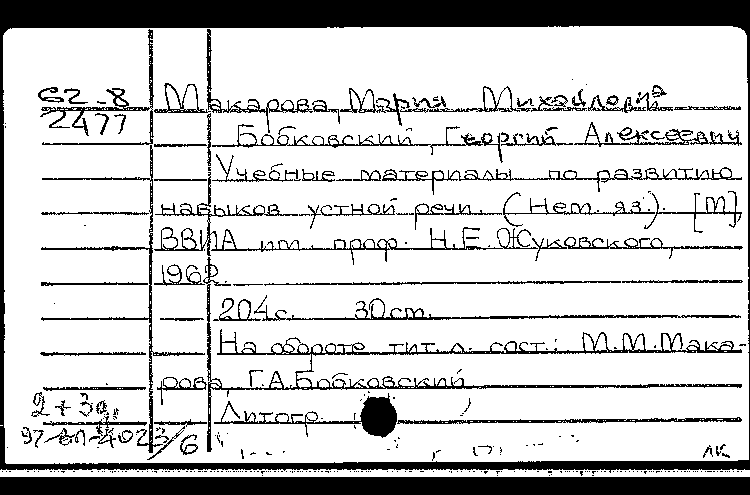 62-8
2477
Макарова, Мария Михайловна
Бобковский, Георгий Алексеевич
Учебные материалы по развитию
навыков устной речи. (Нем. яз.). [М],
ВВИА им. проф. Н.Е. Жуковского,
1962.
204 с. 30 см.
На обороте тит. л. сост.: М.М. Мака-
рова, Г.А. Бобковский
Литогр.
2+3д.
97-вл-4023/6
лк